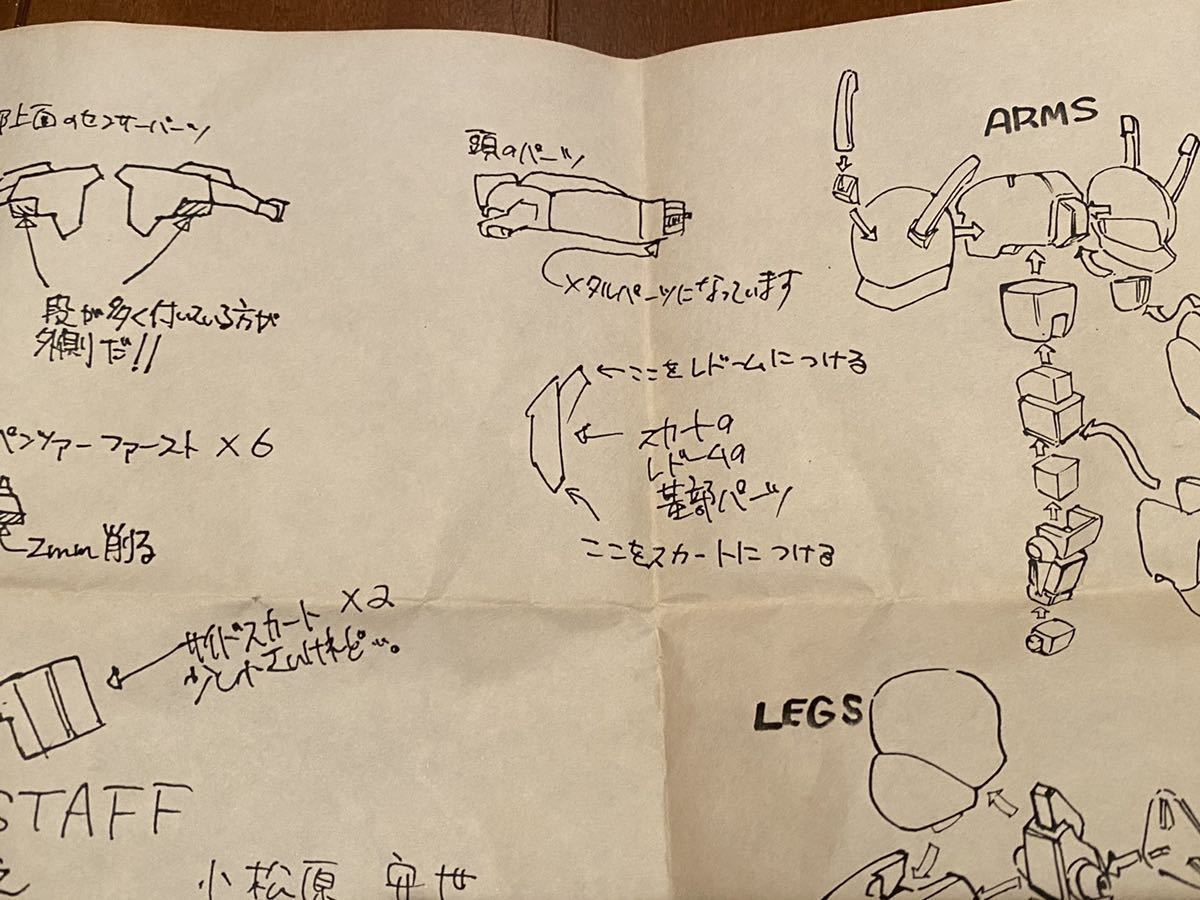 部上面のセンサーパーツ
段が多く付いている方が
外側だ!!
頭のパーツ
メタルパーツになっています
ARMS
ここをレドームにつける
スカートの
レドームの
基部パーツ
ここをスカートにつける
ペンツァーファースト×6
2mm削る
サイドスカート×2
少し小さいけれど…。
LEGS
STAFF
小松原